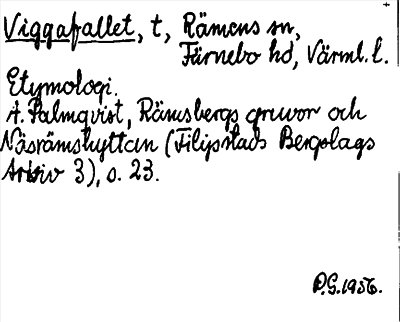 Viggafallet, t, Rämens sn,
Färnebo hd, Värml. l.
Etymologi.
A. Palmqvist, Rämsbergs gruvor och
Näsrämshyttan (Filipstads Bergslags
Arkiv 3), s. 23.
P.G. 1956.